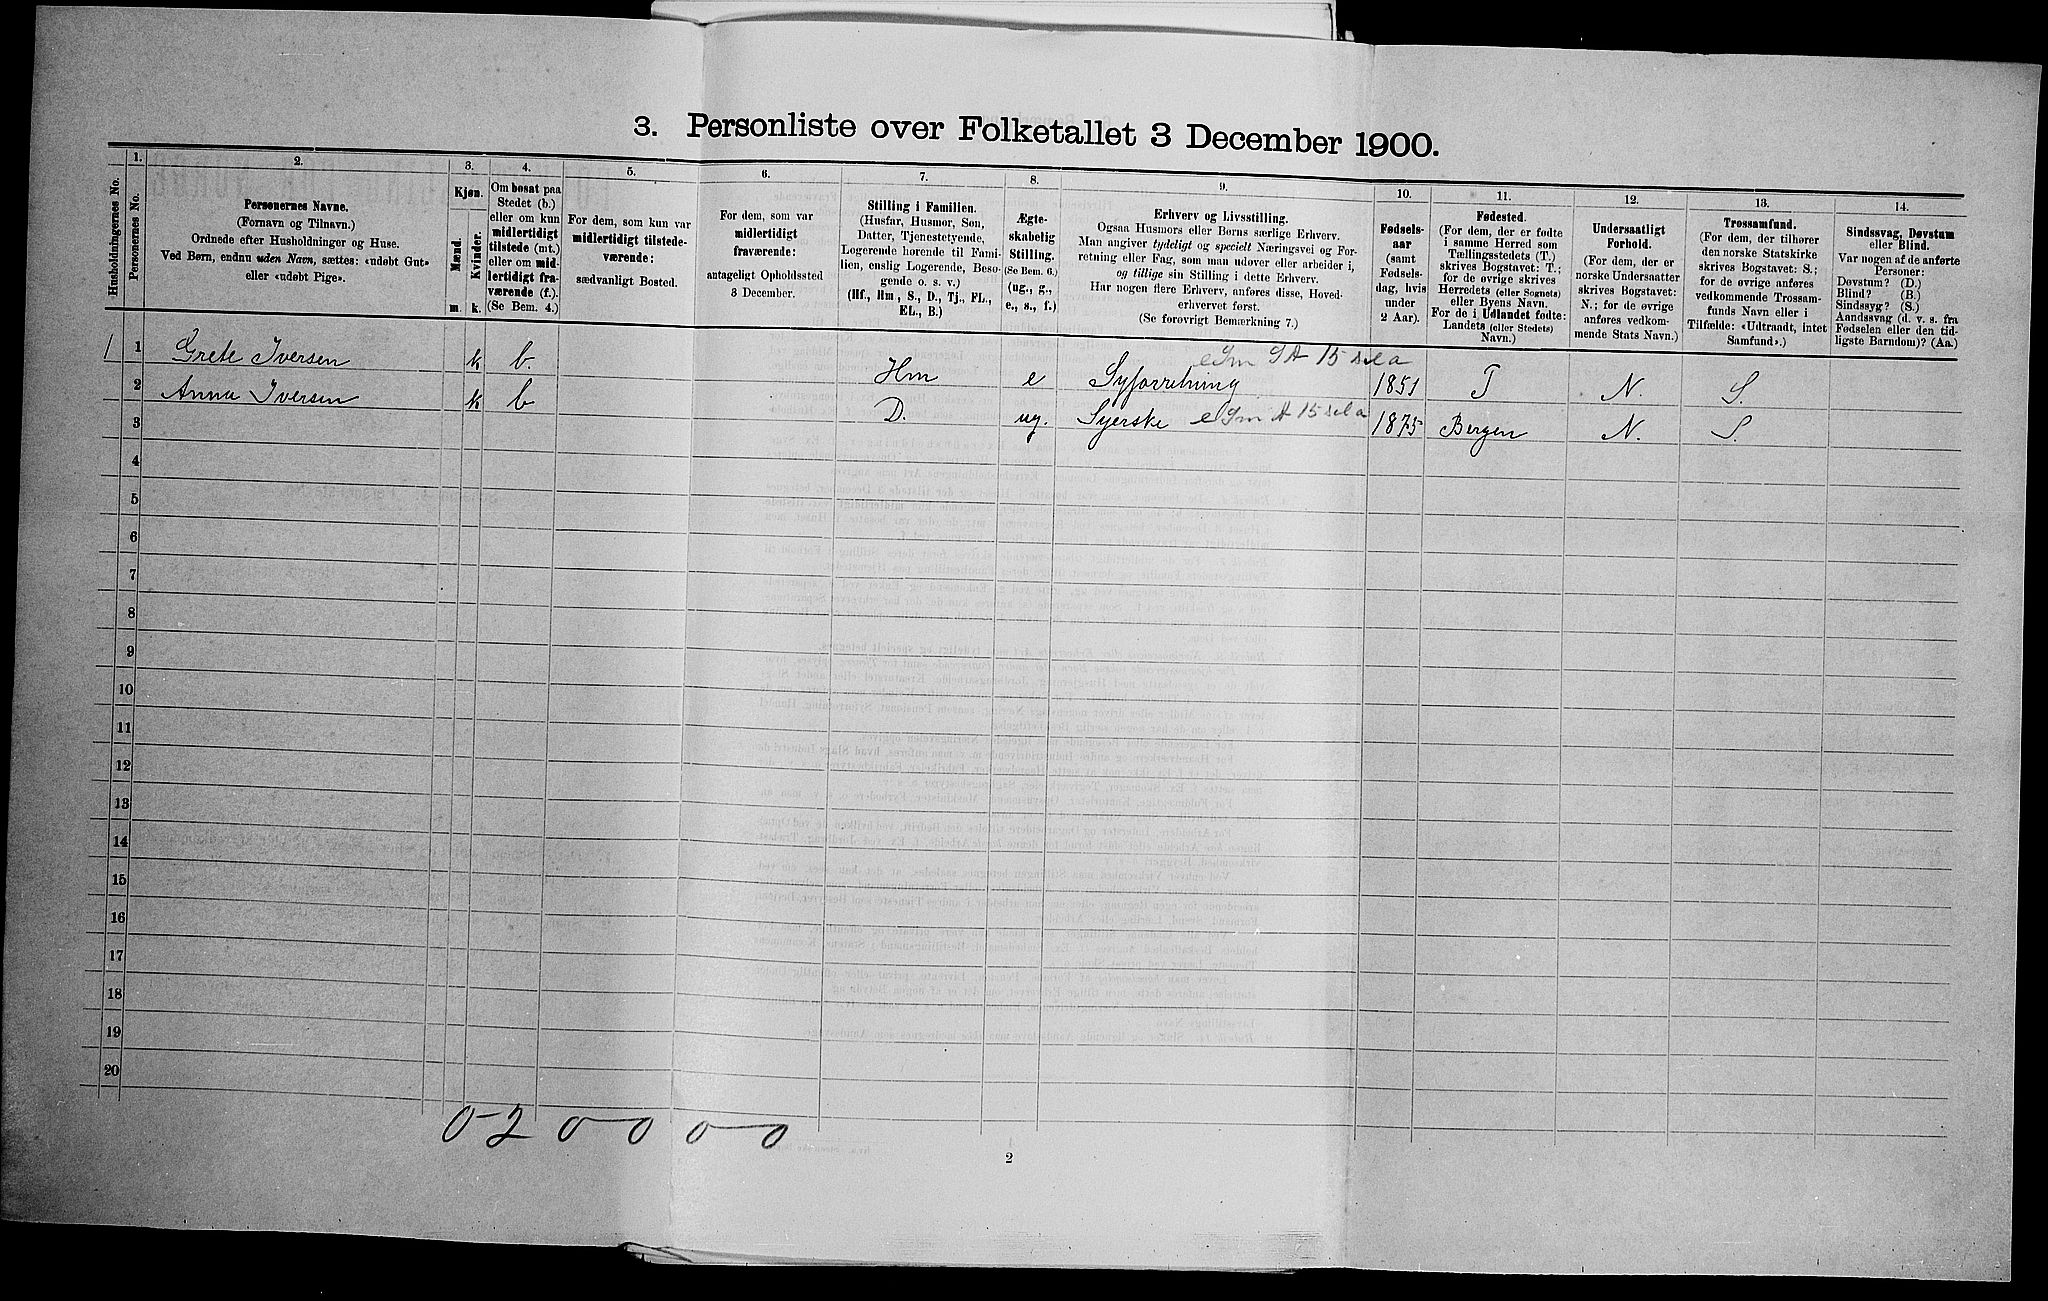 3. Personliste over Folketallet 3 December 1900.
Husholdningernes No.
1.
Personernes No.
2.
Personernes Navne.
(Fornavn og Tilnavn.)
Ordnede efter Husholdninger og Huse.
Ved Børn, endnu uden Navn, sættes: «udøbt Gut»
eller «udøbt Pige».
3.
Kjøn.
Mænd.
Kvinder.
m. k.
4.
Om bosat paa
Stedet (b.)
eller om kun
midlertidigt
tilstede (mt.)
eller om mid-
lertidigt fra-
værende (f.).
(Se Bem. 4.)
5.
For dem, som kun var
midlertidigt tilstede-
værende:
sædvanligt Bosted.
6.
For dem, som var
midlertidigt
fraværende:
antageligt Opholdssted
3 December.
7.
Stilling i Familien.
(Husfar, Husmor, Søn,
Datter, Tjenestetyende,
Logerende hørende til Fami-
lien, enslig Logerende, Besø-
gende o. s. v.)
(Hf., Hm., S., D., Tj., FL.,
EL., B.)
8.
Ægte-
skabelig
Stilling.
(Se Bem. 6.)
(ug., g.,
e., s., f.)
9.
Erhverv og Livsstilling.
Ogsaa Husmors eller Børns særlige Erhverv.
Man angiver tydeligt og specielt Næringsvei og For-
retning eller Fag, som man udøver eller arbeider i,
og tillige sin Stilling i dette Erhverv.
Har nogen flere Erhverv, anføres disse, Hoved-
erhvervet først.
(Se forøvrigt Bemærkning 7.)
10.
Fødsels-
aar
(samt
Fødsels-
dag, hvis
under
2 Aar).
11.
Fødested.
(For dem, der er fødte
i samme Herred som
Tællingsstedets (T.)
skrives Bogstavet: T.;
for de øvrige skrives
Herredets (eller Sognets)
eller Byens Navn.
For de i Udlandet fødte:
Landets (eller Stedets)
Navn.)
12.
Undersaatligt
Forhold.
(For dem, der er
norske Undersaatter
skrives Bogstavet:
N.; for de øvrige
anføres vedkom-
mende Stats Navn.)
13.
Trossamfund.
(For dem, der tilhører
den norske Statskirke
skrives Bogstavet: S.;
for de øvrige anføres
vedkommende Trossam-
funds Navn eller i
Tilfælde: «Udtraadt, intet
Samfund».)
14.
Sindssvag, Døvstum
eller Blind.
Var nogen af de anførte
Personer:
Døvstum? (D.)
Blind? (B.)
Sindssyg? (S.)
Aandssvag (d. v. s. fra
Fødselen eller den tid-
ligste Barndom)? (Aa.)
1 1 Grete Iversen k b. Hm e Syforretning 1851 T N. S.
2 Anna Iversen k b D. ug. Syerske 1875 Bergen N. S.
3
4
5
6
7
8
9
10
11
12
13
14
15
16
17
18
19
20
0-2 0 0 0 0
2